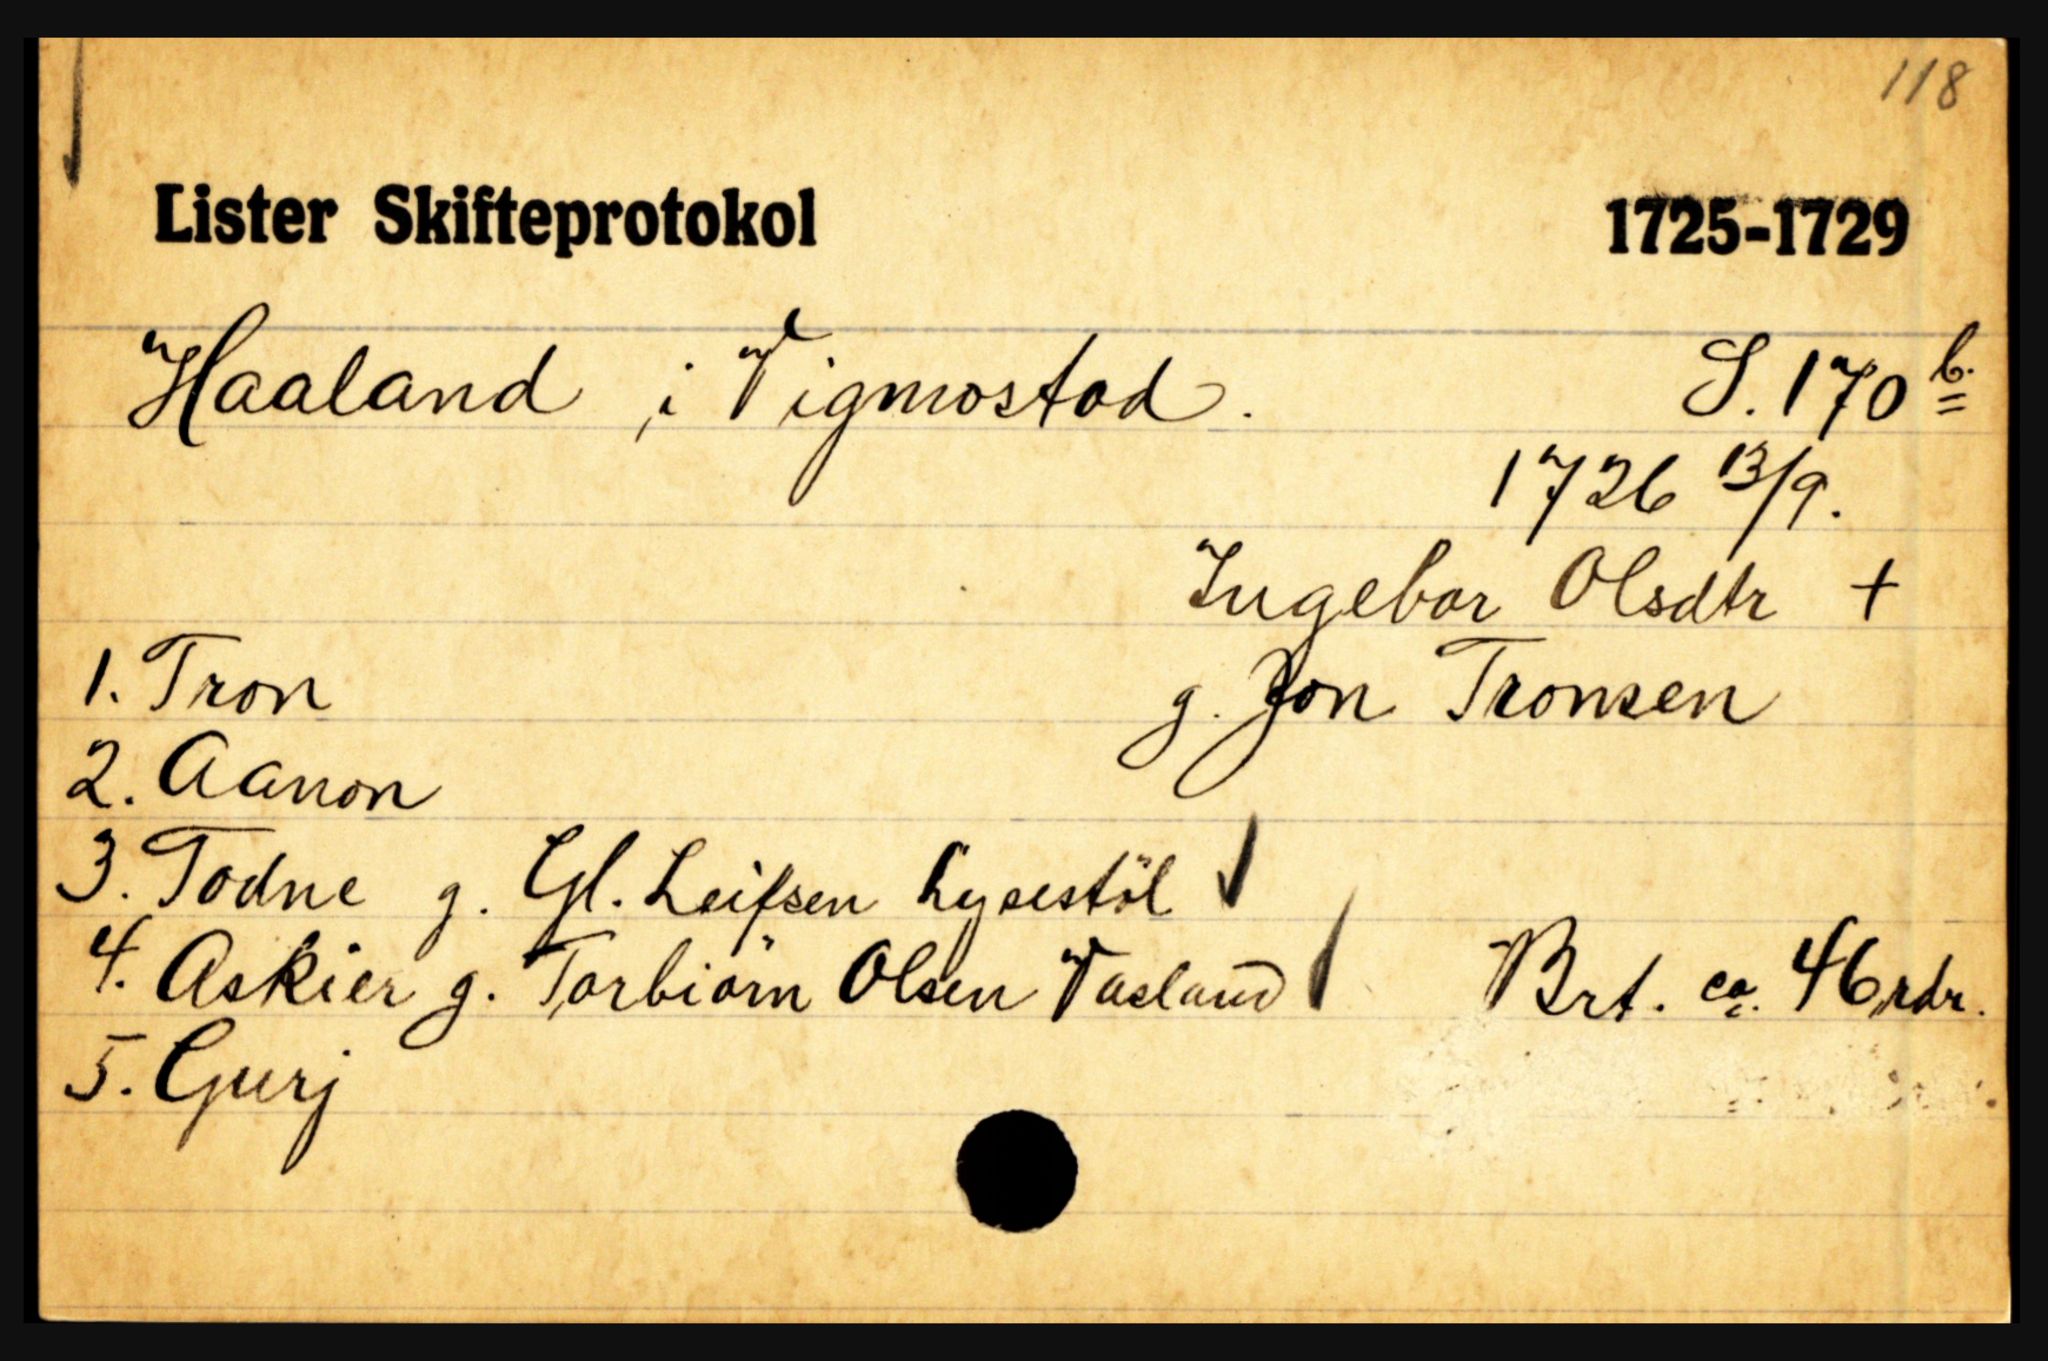 118
Lister Skifteprotokol 1725-1729
Haaland i Vigmostad. S. 170 b.
1726 13/9.
Ingebor Olsdtr +
1. Tron g. Jon Tronsen
2. Aanon
3. Todne g. Gl. Leifsen Lyseestöl
4. Askier g. Torbiörn Olsen Vasland Brt. ca. 46 rdr.
5. Gurj